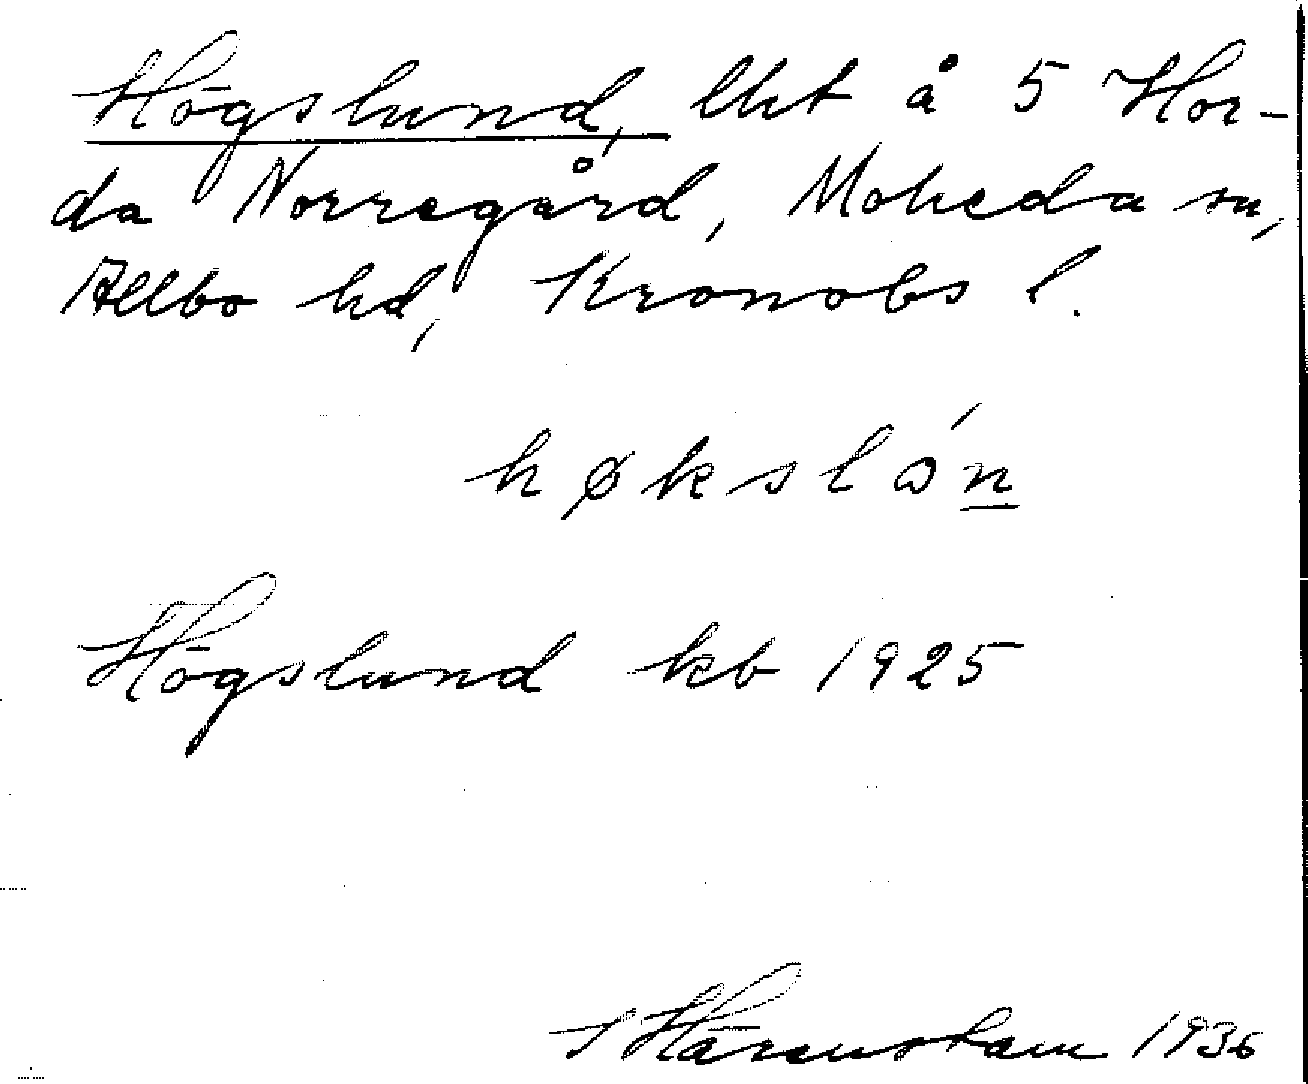 Högslund, lht å 5 Hor-
da Norregård, Moheda sn,
Allbo hd, Kronobs l.
høkslón
Högslund kb 1925
S Härenstam 1936